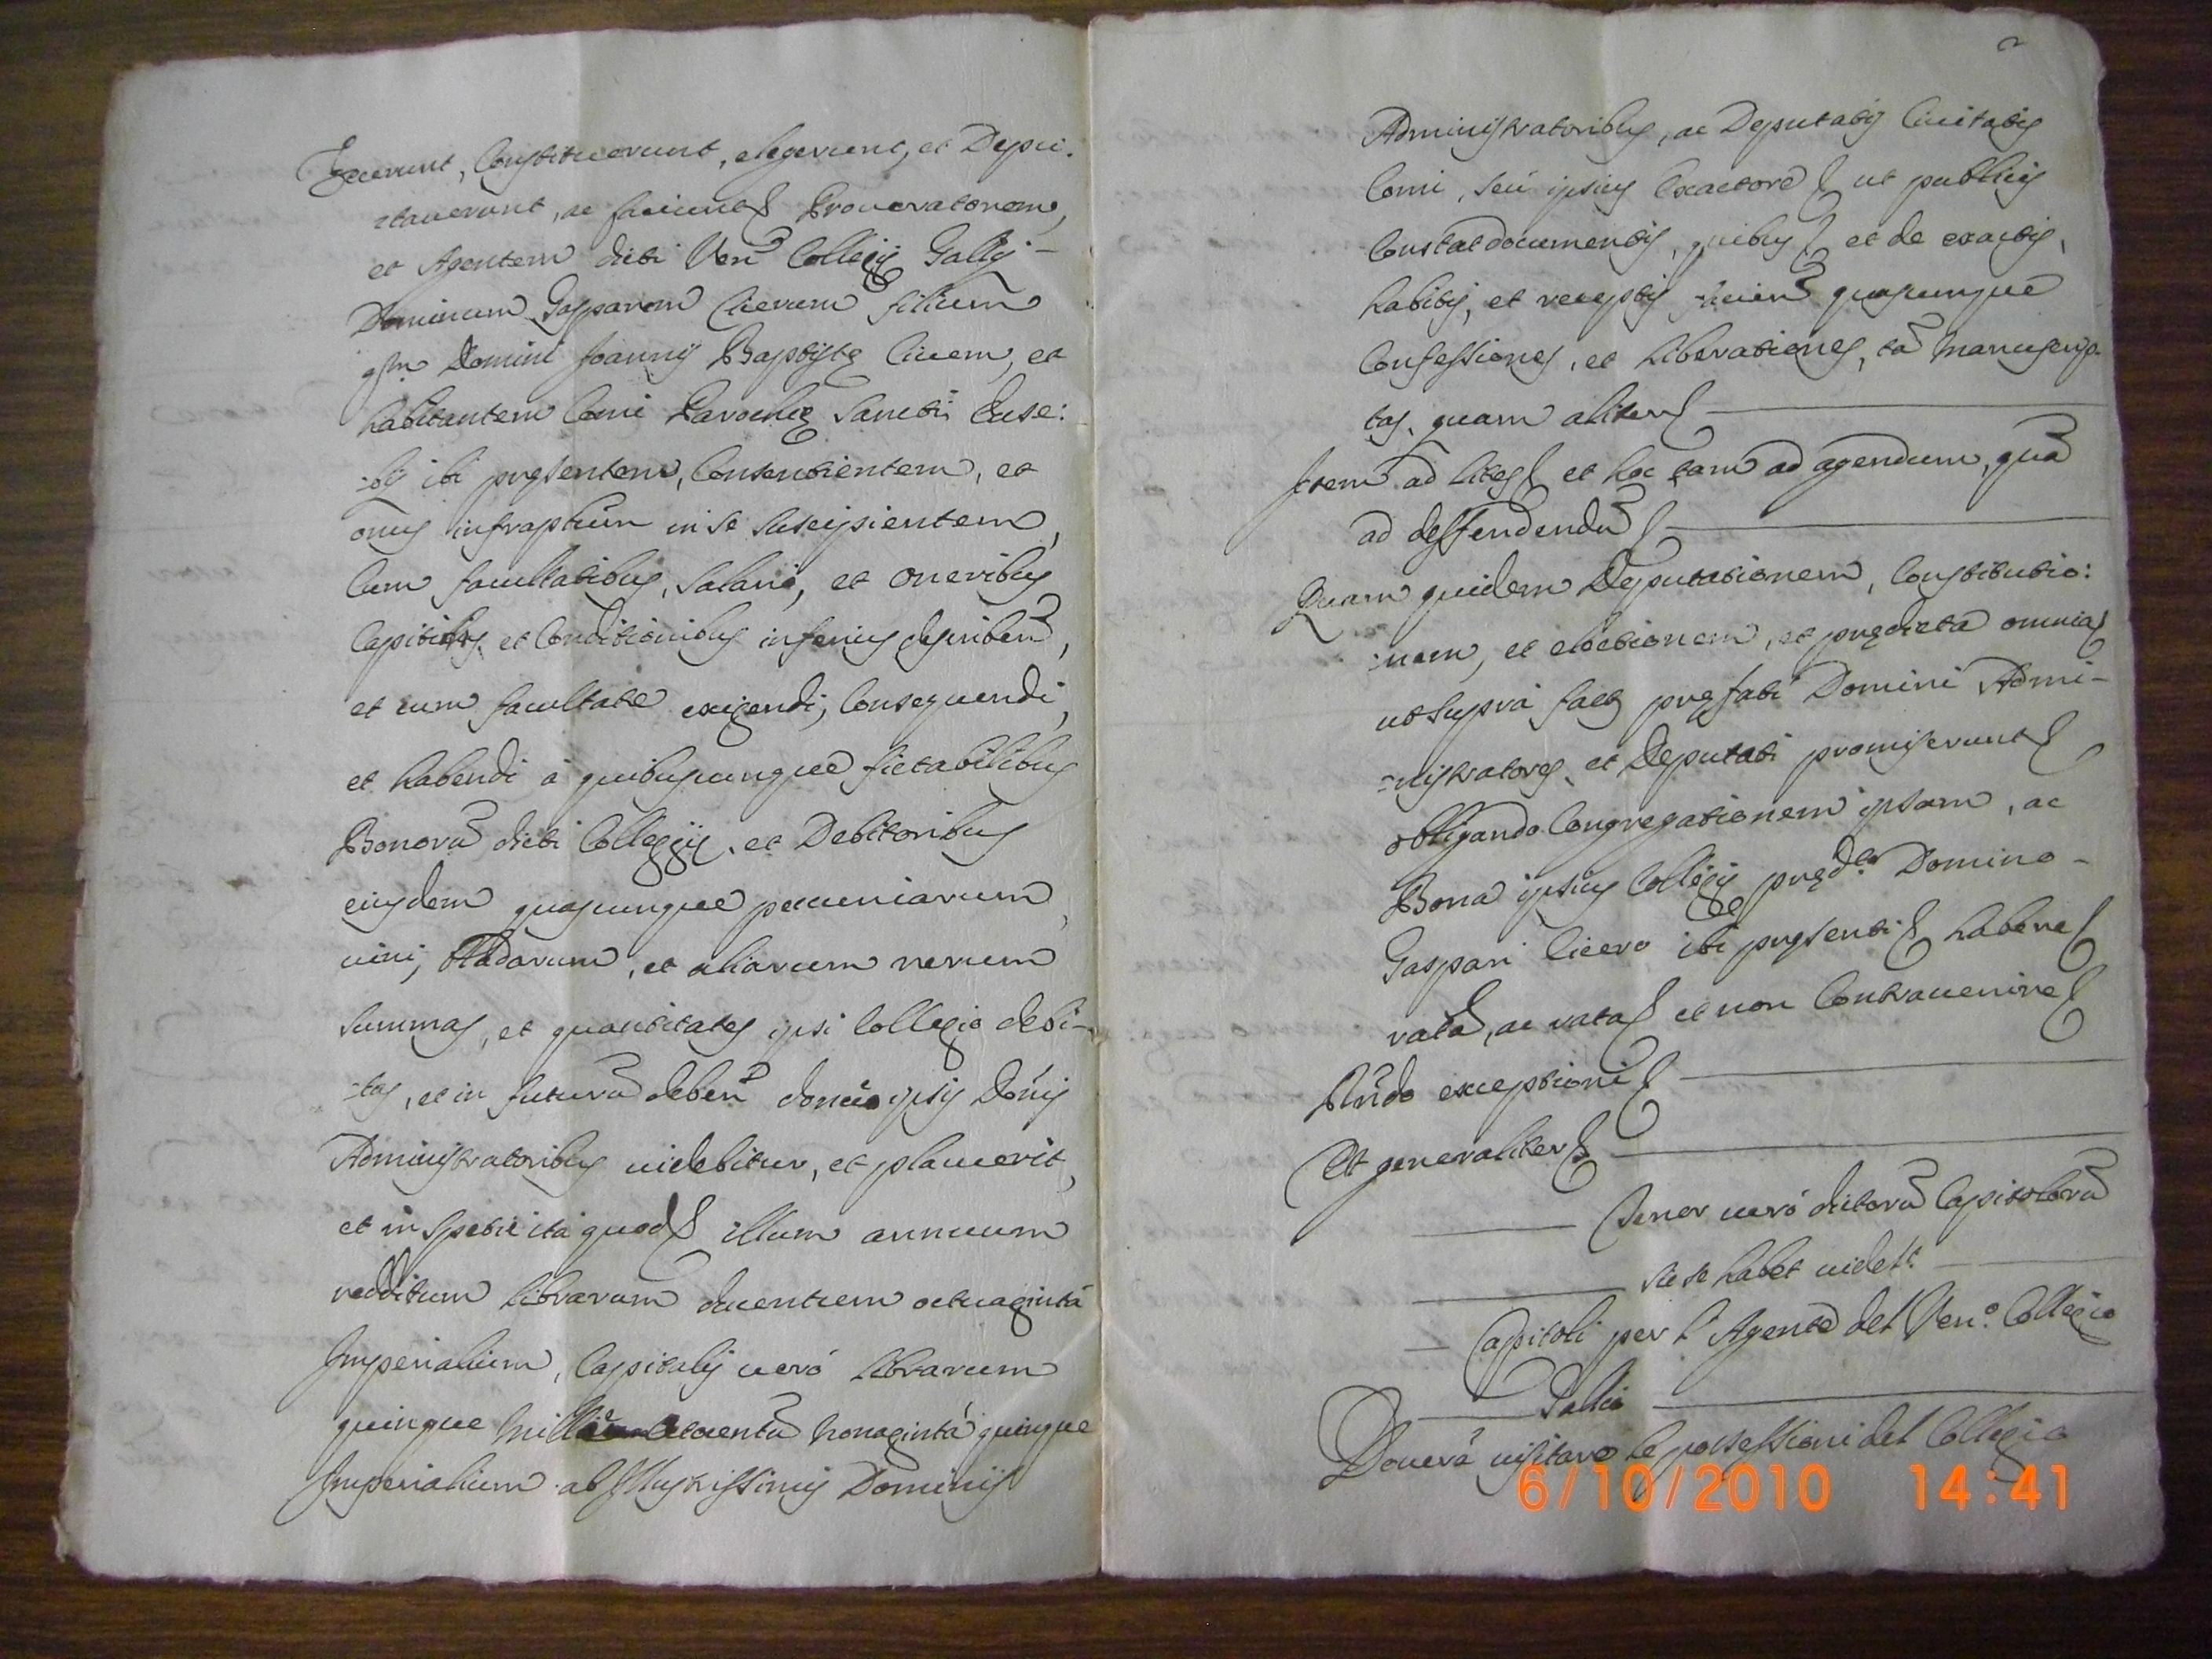 Fecerunt, Constituerunt, elegerunt, et Depu:
:tauerunt, ac faciunt Procuratorem,
et Agentem dicti Ven: Collegij Gallij -
Dominum Gasparem Cicerum filium
qm Domini Joannis Baptistę Ciuem, et
habitantem Comi Parochię Sancti Euse:
:bij ibi pręsentem, Consentientem, et
onus infraptum in se suscipientem,
Cum facultatibus, Salario, et oneribus
Capitulis, et Conditionibus inferius describen,
et cum facultate exigendi, Consequendi,
et habendi à quibuscunque fictabilibus
Bonorũ dicti Collegij, et Debitoribus
eiusdem quascunque pecuniarum,
uini, Bladorum, et aliarum rerum
summas, et quantitates ipsi Collegio debi-
-tas, et in futurũ deben donec ipsis Dnis
Administratoribus uidebitur, et placuerit,
et in specie ita quod illum annuum
redditum librarum ducentum octuaginta
Imperialium, Capitalis uerò librarum
quinque mille octocentũ nonagintà quinque
Imperialium ab Illustrissimis Dominis
2
Administratoribus, ac Deputatis Ciuitatis
Comi, seù ipsius Exactore ut publicis
Constat documentis, quibus et de exactis,
habitis, et receptis facien quascunque
Confessiones, et liberationes, tã manuscrip-
tas, quam aliter
Item ad lites et hoc tam ad agendum, quã
ad deffendendũ
Quam quidem Deputationem, Constitutio:
:nem, et electionem, et prędicta omnia
ut suprà facta pręfati Domini Admi-
-nistratores, et Deputati promiserunt
obligando Congregationem ipsam, ac
Bona ipsius Collegij pręd:to Domino -
Gaspari Cicero ibi pręsenti habere
rata, ac rata et non Contrauenire
Rñdo exceptioni
Et generaliter
Tenor uerò dictorũ Capitulorũ
sic se habet uidelt.
Capitoli per l'Agente del Ven:o Collegio
Gallio
Douerà uisitare le possessioni del Collegio
6/10/2010 14:41